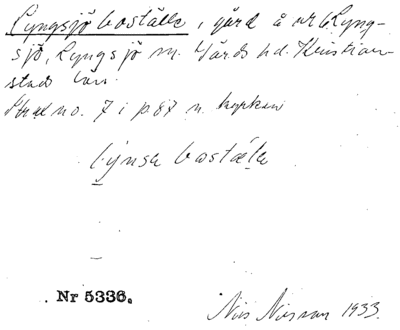 Lyngsjö boställe, gård å nr 6 Lyng-
sjö, Lyngsjö sn. Gärds hd. Kristian-
stads län.
no. 7 i p. 87 n. kyrkan
Nr 5336.
Nils Nilsson 1933.